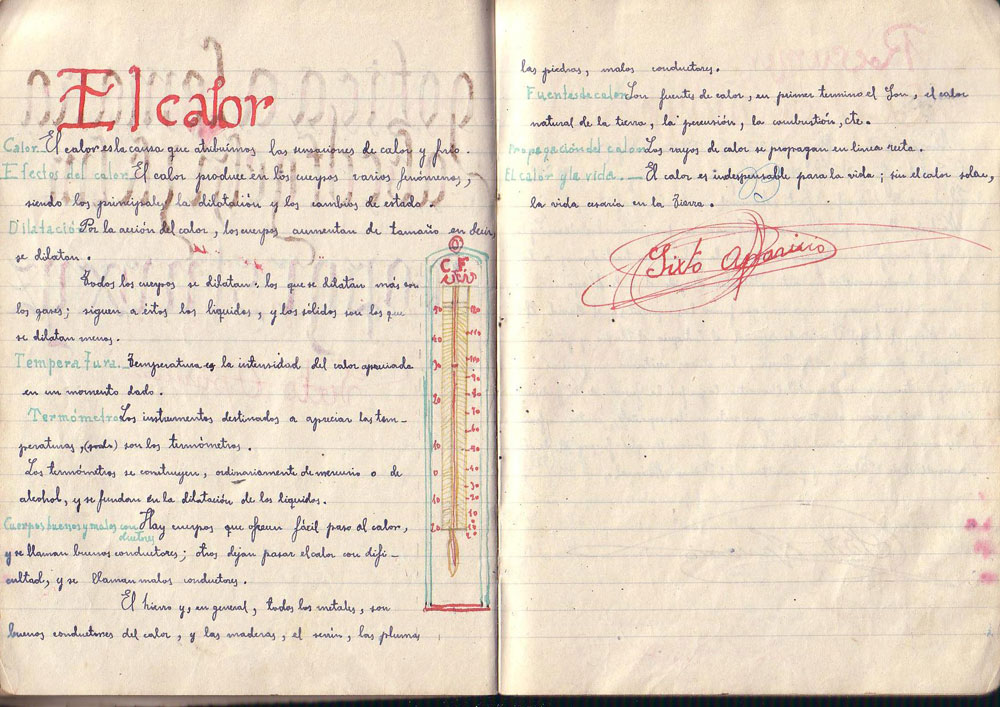 El calor
Calor. El calor es la causa que atribuimos las sensaciones de calor y frio.
Efectos del calor. El calor produce en los cuerpos varios fenómenos,
siendo los principales la dilatación y los cambios de estado.
Dilatación Por la acción del calor, los cuerpos aumentan de tamaño, en decir,
se dilatan.
Todos los cuerpos se dilatan: los que se dilatan más son
los gases; siguen a éstos los liquidos, y los sólidos son los que
se dilatan menos.
Temperatura. Temperatura es la intensidad del calor apreciada
en un momento dado.
Termómetro Los instrumentos destinados a apreciar las tem-
peraturas, son los termómetros.
Los termómetros se construyen, ordinariamente de mercurio o de
alcohol, y se fundan en la dilatación de los liquidos.
Cuerpos buenos y malos con
ductores Hay cuerpos que ofrecen fácil paso al calor,
y se llaman buenos conductores; otros dejan pasar el calor con difi-
cultad, y se llaman malos conductores.
El hierro y, en general, todos los metales, son
buenos conductores del calor, y las maderas, el serrin, las plumas
C. F.
50
40
30
20
10
0
10
20
las piedras, malos conductores.
Fuentes de calor Son fuentes de calor, en primer termino el Son, el calor
natural de la tierra, la percusión, la combustión, etc.
Propagación del calor Los rayos de calor se propagan en linea recta.
El calor y la vida. — El calor es indespensable para la vida; sin el calor solar,
la vida cesaria en la Tierra.
Sixto Aparicio